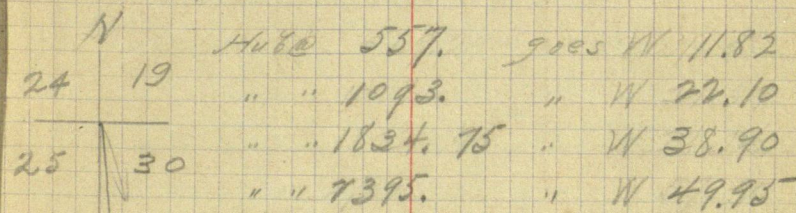 N
24 19
25 30
Hub@ 557. goes W 11.82
" " 1093. " W 22.10
" " 1834.75 " W 38.90
" " 2395. " W 49.95